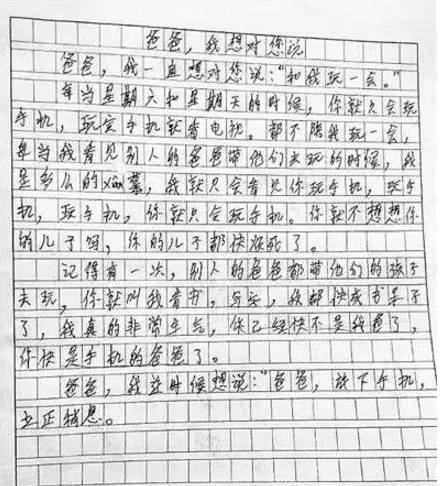 爸爸,我想对您说
爸爸,我一直想对您说:“和我玩一会。”
每当星期六和星期天的时候,你就只会玩
手机,玩完手机就看电视。都不陪我玩一会,
每当我看见别人的爸爸带他们去玩的时候,我
是多么的xiàn慕,我就只会看见你玩手机,玩手
机,玩手机,你就只会玩手机。你就不想想你
的儿子吗,你的儿子都快烦死了。
记得有一次,别人的爸爸都带他们的孩子
去玩,你就叫我看书,写字,我都快成书呆子
了,我真的非常生气,你已经快不是我爸了,
你快是手机的爸爸了。
爸爸,我这时候想说:“爸爸,放下手机,
立正稍息。